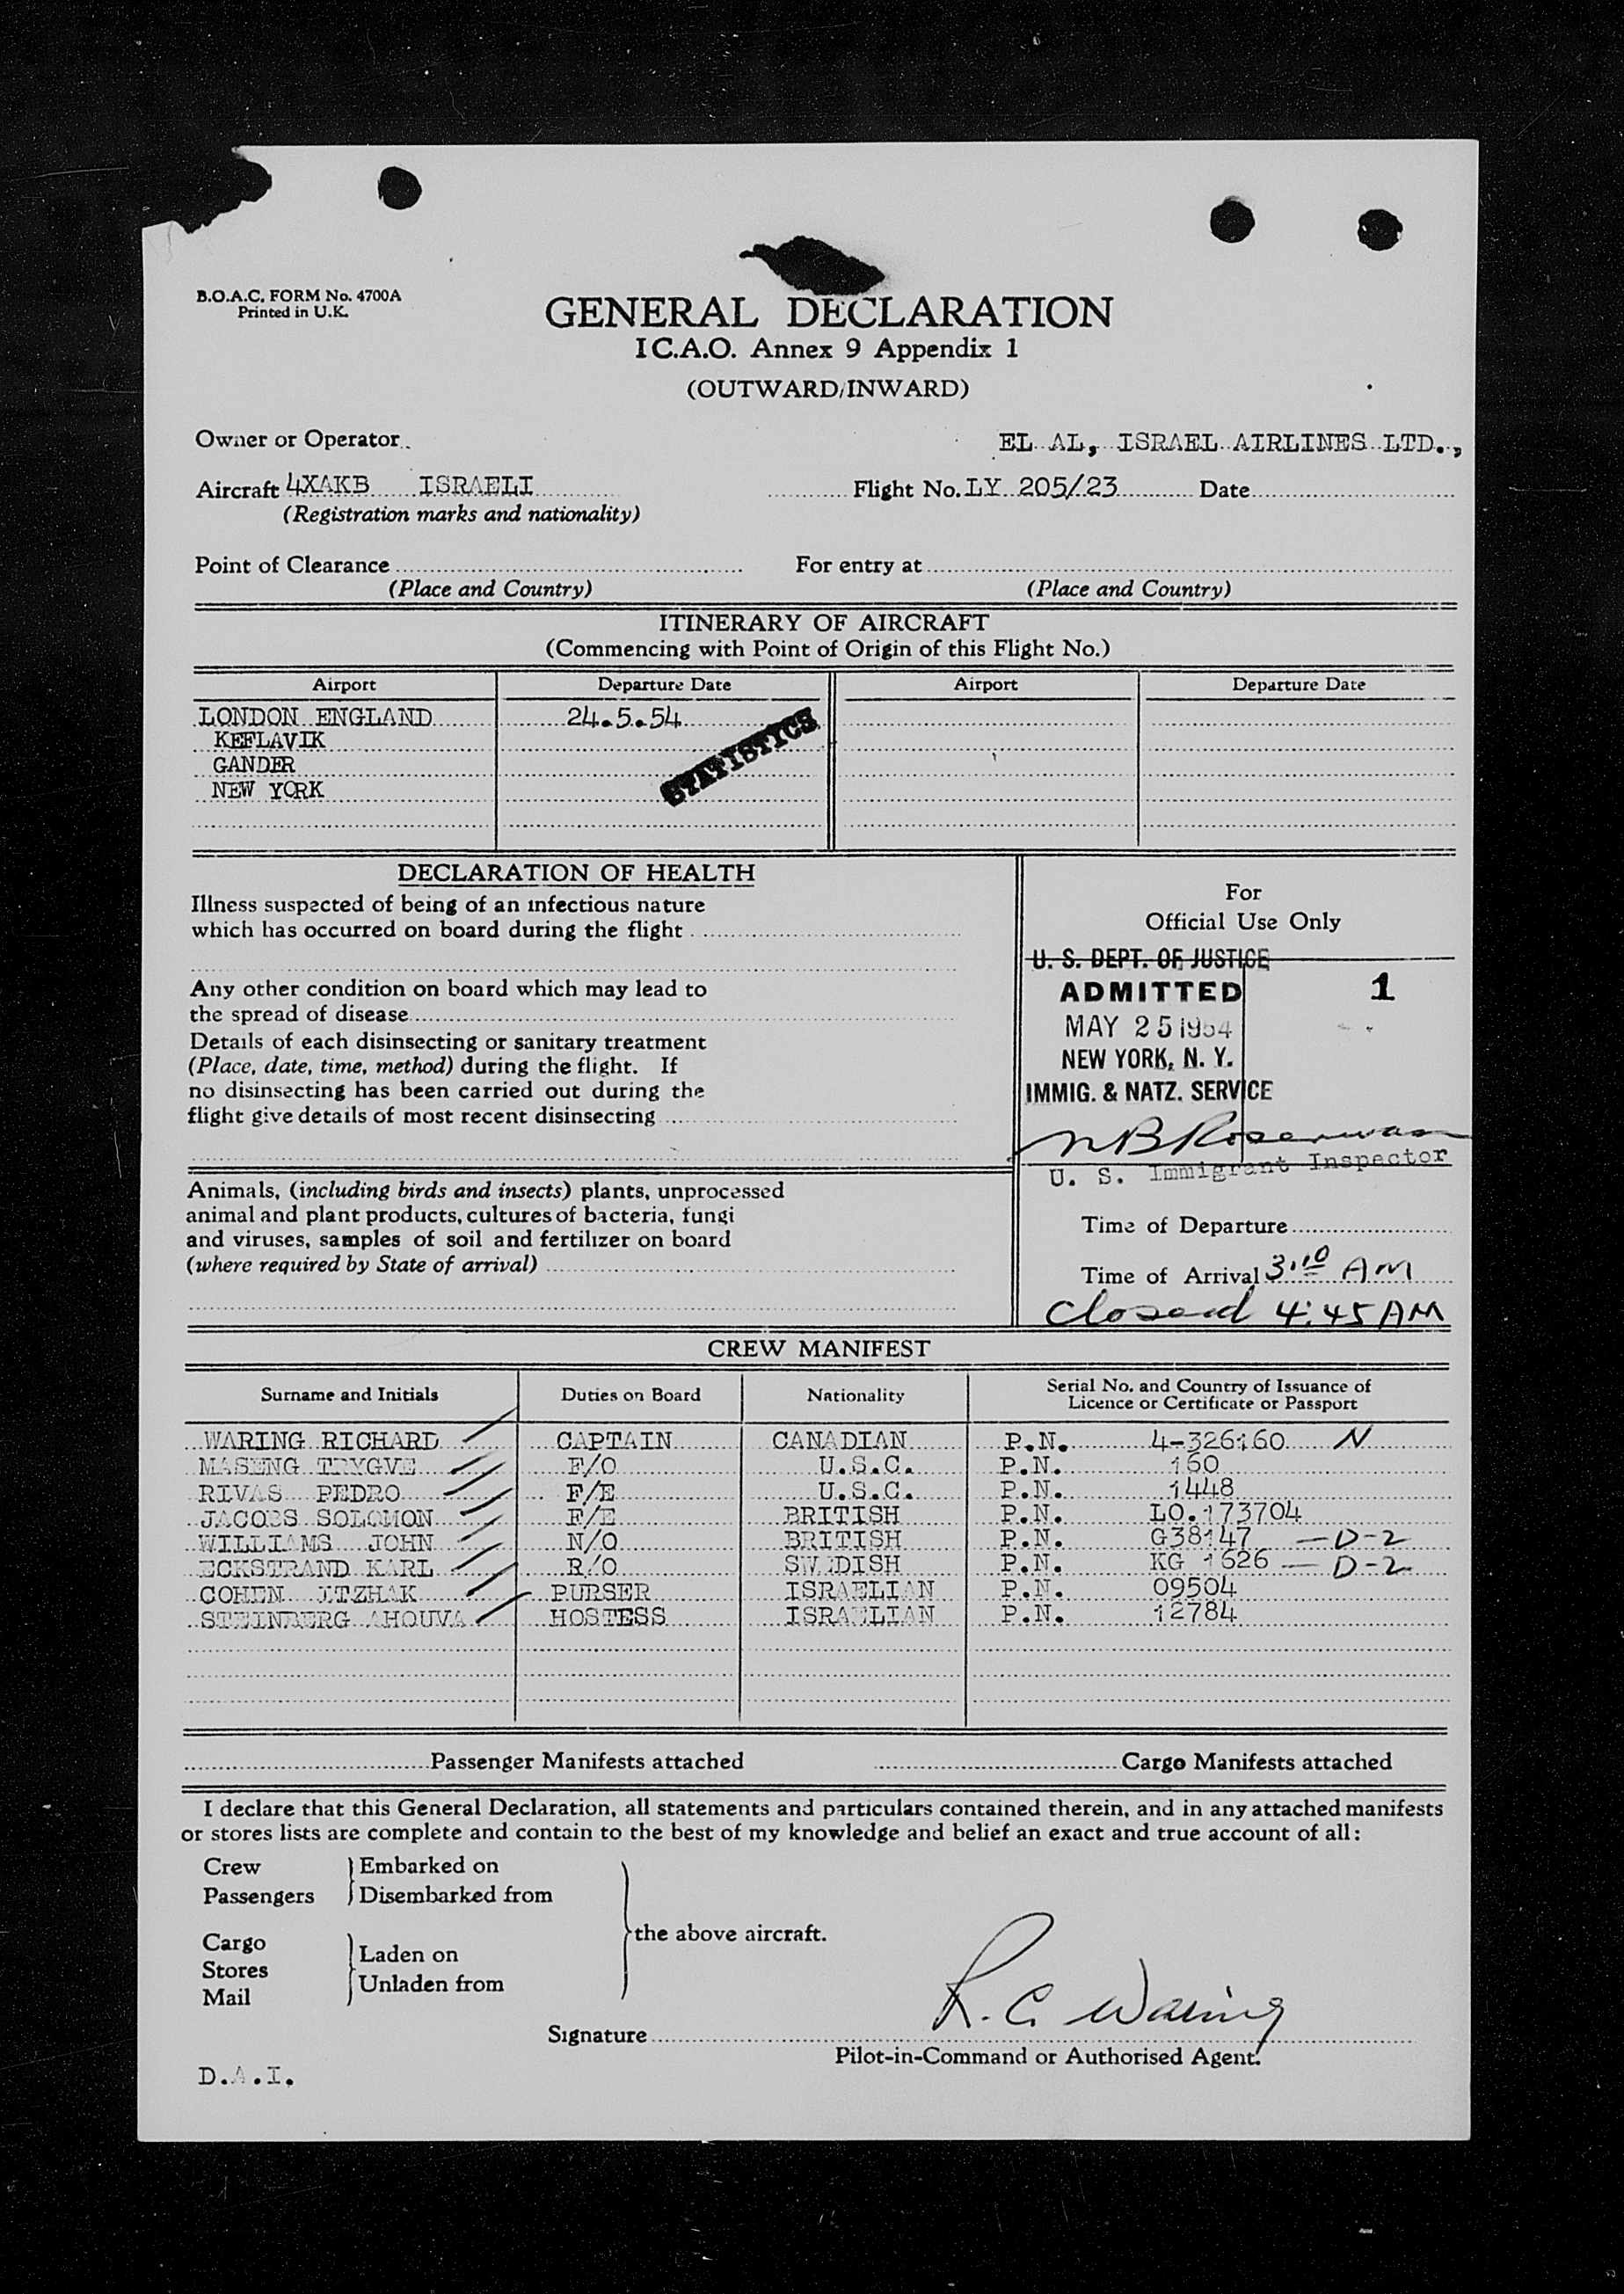 B.O.A.C. FORM No. 4700A
Printed in U.K.
GENERAL DECLARATION
I C.A.O. Annex 9 Appendix 1
(OUTWARD/INWARD)
Owner or Operator EL AL, ISRAEL AIRLINES LTD.,
Aircraft 4XAKB ISRAELI Flight No. LY 205/23 Date
(Registration marks and nationality)
Point of Clearance For entry at
(Place and Country) (Place and Country)
ITINERARY OF AIRCRAFT
(Commencing with Point of Origin of this Flight No.)
Airport Departure Date Airport Departure Date
LONDON ENGLAND 24.5.54
KEFLAVIK
GANDER
NEW YORK
STATISTICS
DECLARATION OF HEALTH
Illness suspected of being of an infectious nature
which has occurred on board during the flight
Any other condition on board which may lead to
the spread of disease
Details of each disinsecting or sanitary treatment
(Place, date, time, method) during the flight. If
no disinsecting has been carried out during the
flight give details of most recent disinsecting
Animals, (including birds and insects) plants, unprocessed
animal and plant products, cultures of bacteria, fungi
and viruses, samples of soil and fertilizer on board
(where required by State of arrival)
For
Official Use Only
U. S. DEPT. OF JUSTICE
ADMITTED 1
MAY 25 1954
NEW YORK, N. Y.
IMMIG. & NATZ. SERVICE
U. S. Immigrant Inspector
Time of Departure
Time of Arrival 3.10 AM
Closed 4:45 AM
CREW MANIFEST
Surname and Initials Duties on Board Nationality Serial No. and Country of Issuance of
Licence or Certificate or Passport
WARING RICHARD CAPTAIN CANADIAN P.N. 4-326160 N
MASENG TRYGVE F/O U.S.C. P.N. 160
RIVAS PEDRO F/E U.S.C. P.N. 1448
JACOBS SOLOMON F/E BRITISH P.N. LO.173704
WILLIAMS JOHN N/O BRITISH P.N. G38147 —D-2
ECKSTRAND KARL R/O SWEDISH P.N. KG 1626 — D-2
COHEN ITZHAK PURSER ISRAELIAN P.N. 09504
STEINBERG AHOUVA HOSTESS ISRAELIAN P.N. 12784
Passenger Manifests attached Cargo Manifests attached
I declare that this General Declaration, all statements and particulars contained therein, and in any attached manifests
or stores lists are complete and contain to the best of my knowledge and belief an exact and true account of all:
Crew Embarked on
Passengers Disembarked from
the above aircraft.
Cargo
Stores Laden on
Mail Unladen from
R. C. Waring
Signature
Pilot-in-Command or Authorised Agent.
D.A.I.